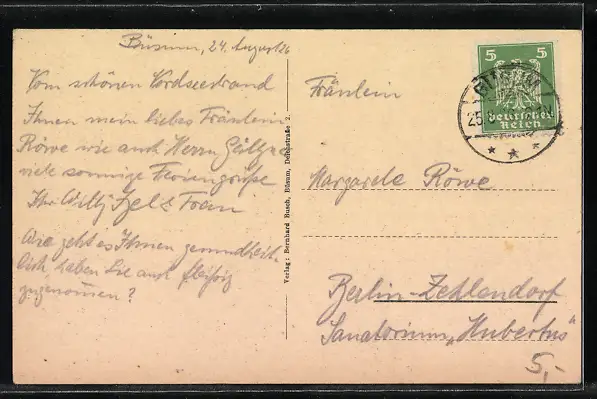 Büsum, 24. August 26
Vom schönen Nordseestrand
Ihnen mein liebes Fräulein
Röwe wie auch Herrn
viele sonnige Feriengrüße
Ihr Willy & Frau
Wie geht es Ihnen gesundheit-
lich, haben Sie auch fleißig
zugenommen?
Verlag: Bernhard Rusch, Büsum, Deichstraße 2.
5 5
Deutsches
Reich
25.8.
Fräulein
Margarete Röwe
Berlin-Zehlendorf
Sanatorium „Hubertus"
5,-